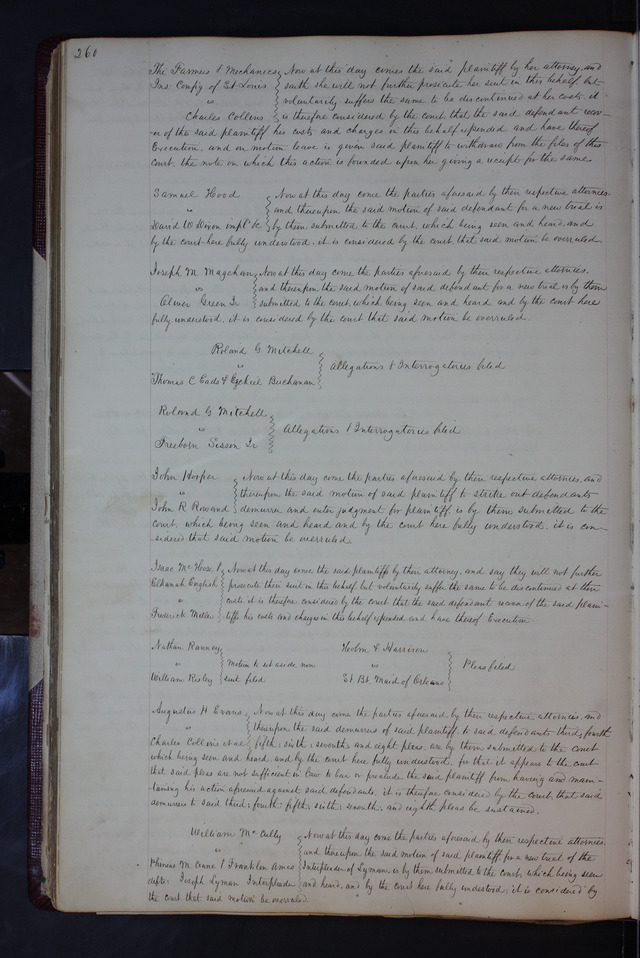 260
The Farmers & Mechanics Now at this day comes the said plaintiff by her attorney, and
Ins Compy of St Louis saith she will not further prosecute her suit in this behalf but
vs voluntarily suffers the same to be discontinued at her costs, it
Charles Collins is therefore considered by the court that the said defendant recov-
-er of the said plaintiff his costs and charges in this behalf expended and have thereof
Execution, and on motion leave is given said plaintiff to withdraw from the files of this
court, the note on which this action is founded upon her giving a receipt for the same
Samuel Hood Now at this day come the parties aforesaid by their respective attornies
vs and thereupon the said motion of said defendant for a new trial is
David W Dixon impld &c by them submitted to the court, which being seen and heard, and
by the court here fully understood, it is considered by the court, that said motion be overruled
Joseph M Magehan Now at this day come the parties aforesaid by their respective attornies,
vs and thereupon the said motion of said defendant for a new trial is by them
Oliver Green Jr submitted to the court, which being seen and heard and by the court here
fully understood, it is considered by the court that said motion be overruled
Roland G Mitchell
vs Allegations & Interrogatories filed
Thomas C Eads & Ezekiel Buchanan
Roland G Mitchell
vs Allegations & Interrogatories filed
Freeborn Sisson Jr
John Hooper Now at this day come the parties aforesaid by their respective attornies, and
vs thereupon the said motion of said plaintiff to strike out defendants
John R Rowand demurrer and enter judgment for plaintiff is by them submitted to the
court, which being seen and heard and by the court here fully understood, it is con-
sidered that said motion be overruled
Isaac Mc Hose & Now at this day come the said plaintiffs by their attorney, and say they will not further
Elkanah English prosecute their suit in this behalf but voluntarily suffer the same to be discontinued at their
vs costs it is therefore considered by the court that the said defendant recover of the said plain-
Frederick Miller tiffs his costs and charges in this behalf expended and have thereof Execution.
Nathan Ranney Hobon & Harrison
vs Motion to set aside non vs Pleas filed
William Risley suit filed St Bt. Maid of Orleans
Augustus H Evans Now at this day come the parties aforesaid by their respective attornies, and
vs thereupon the said demurrer of said plaintiff to said defendants third, fourth
Charles Collins et al fifth, sixth, seventh and eight pleas, are by them submitted to the court
which being seen and heard, and by the court here fully understood, for that it appears to the court
that said pleas are not sufficient in law to bar or preclude the said plaintiff from having and main-
taining his action aforesaid against said defendants, it is therefore considered by the court, that said
demurrer to said third, fourth, fifth, sixth, seventh, and eighth pleas be sustained.
William Mc Cully Now at this day come the parties aforesaid by their respective attornies,
vs and thereupon the said motion of said plaintiff for a new trial of the
M. Enne & Franklin Ames Interpleader of Lyman, is by them submitted to the court, which being seen
defts: Joseph Lyman Interpleader and heard, and by the court here fully understood, it is considered by
the court that said motion be overruled.